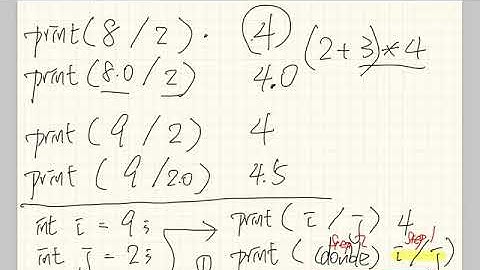 print(8/2). 4 (2+3)*4
print(8.0/2) 4.0
print(9/2) 4
print(9/2.0) 4.5
int i = 9; print(i/j) 4
step 2 step 1
int j = 2; ① print((double) i/j)